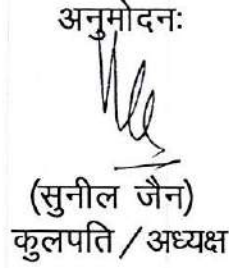 अनुमोदनः
(सुनील जैन)
कुलपति / अध्यक्ष